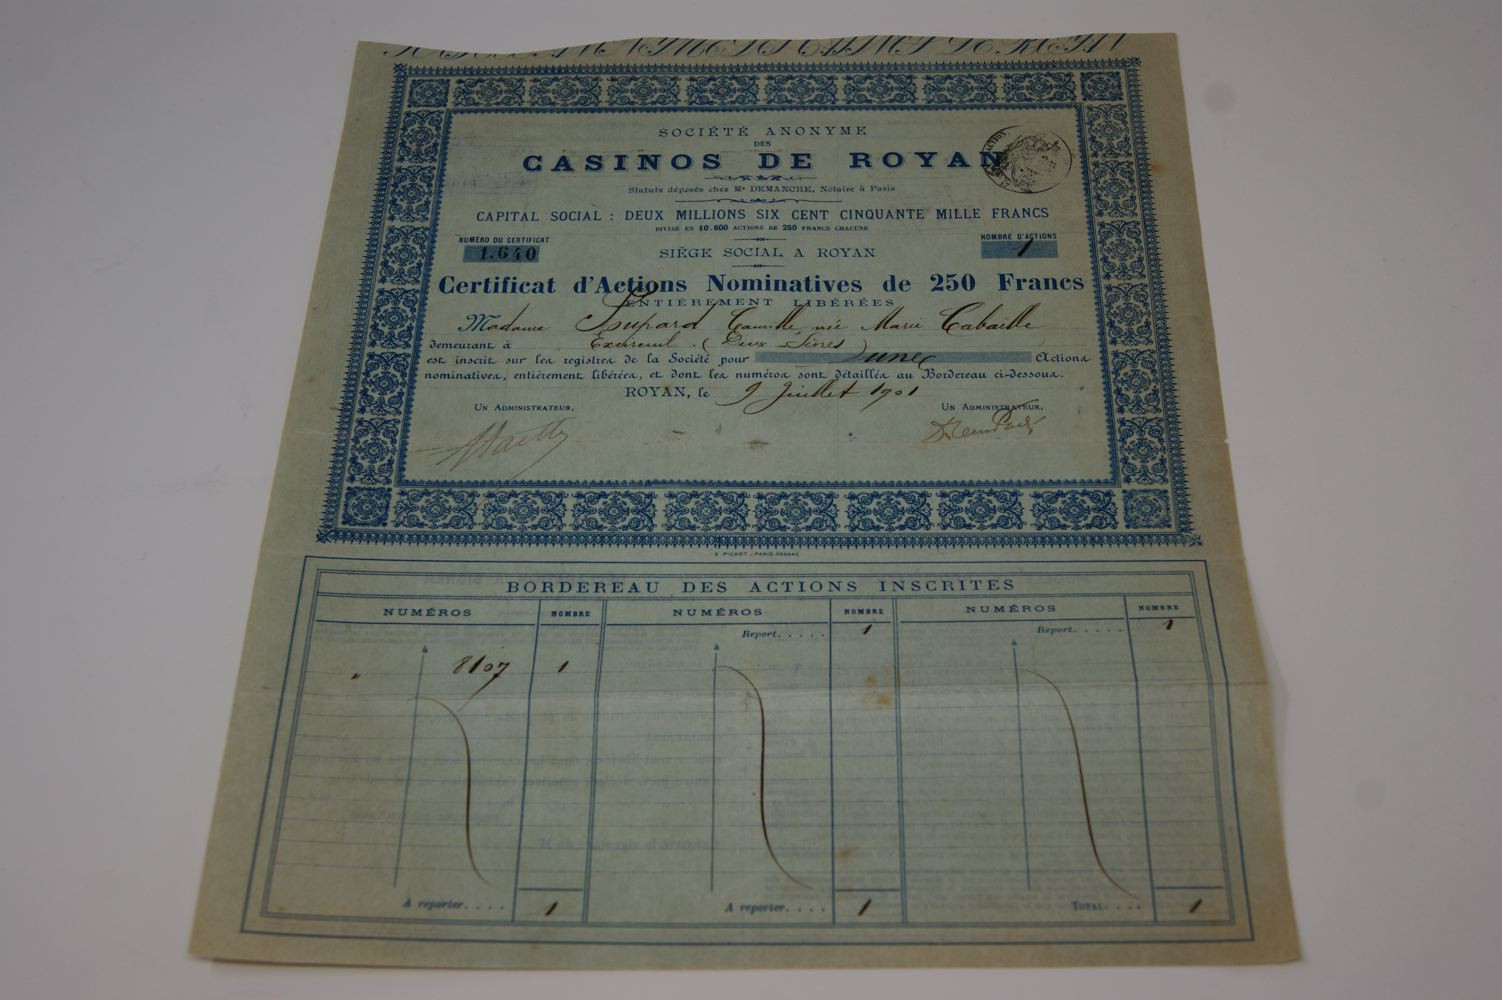 SOCIÉTÉ ANONYME
DES
CASINOS DE ROYAN
Statuts déposés chez Me DEMANCHE, Notaire à Paris
CAPITAL SOCIAL : DEUX MILLIONS SIX CENT CINQUANTE MILLE FRANCS
DIVISÉ EN 10.600 ACTIONS DE 250 FRANCS CHACUNE
NUMÉRO DU CERTIFICAT
1.640
NOMBRE D'ACTIONS
1
SIÈGE SOCIAL A ROYAN
Certificat d'Actions Nominatives de 250 Francs
ENTIÈREMENT LIBÉRÉES
Madame Camille née Marie Cabaille
demeurant à Exireuil (Deux Sèvres)
est inscrit sur les registres de la Société pour une Actions
nominatives, entièrement libérées, et dont les numéros sont détaillés au Bordereau ci-dessous.
ROYAN, le 9 Juillet 1901
UN ADMINISTRATEUR,
UN ADMINISTRATEUR,
E. PICHOT _ PARIS
BORDEREAU DES ACTIONS INSCRITES
NUMÉROS NOMBRE NUMÉROS NOMBRE NUMÉROS NOMBRE
Report. . . . . 1 Report. . . . . 1
à à à
" 8107 1
A reporter. . . . 1 A reporter. . . . 1 TOTAL. . . . 1